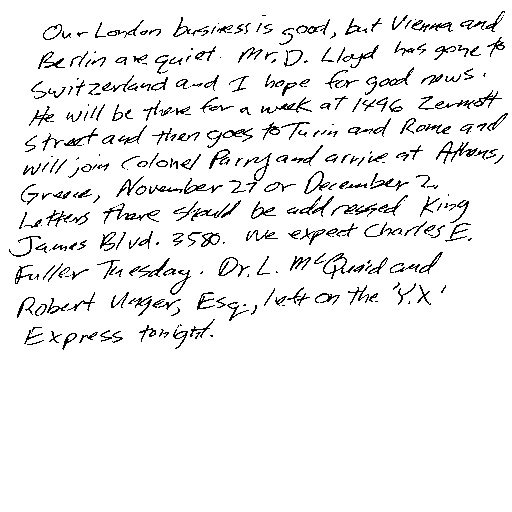 Our London business is good, but Vienna and
Berlin are quiet. Mr. D. Lloyd has gone to
Switzerland and I hope for good news.
He will be there for a week at 1496 Zermott
Street and then goes to Turin and Rome and
will join Colonel Parry and arrive at Athens,
Greece, November 27 or December 2.
Letters there should be addressed King
James Blvd. 3580. We expect Charles E.
Fuller Tuesday. Dr. L. McQuaid and
Robert Unger, Esq., left on the 'Y.X.'
Express tonight.